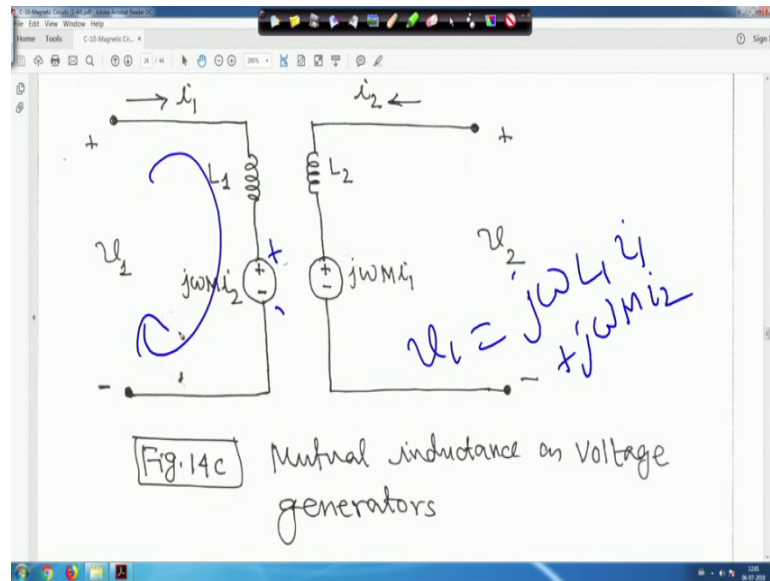 C-10-Magnetic Circuits (1-44).pdf - Adobe Acrobat Reader DC
File Edit View Window Help
Home Tools C-10-Magnetic Cir... ×
Sign I
24 / 44
200%
i₁ i₂
+ +
L₁ L₂
v₁ v₂
jωMi₂ + - jωMi₁ + -
+ -
v₁ = jωL₁i₁
+ jωMi₂
- -
Fig. 14c Mutual inductance as voltage
generators
12:01
06-07-2018